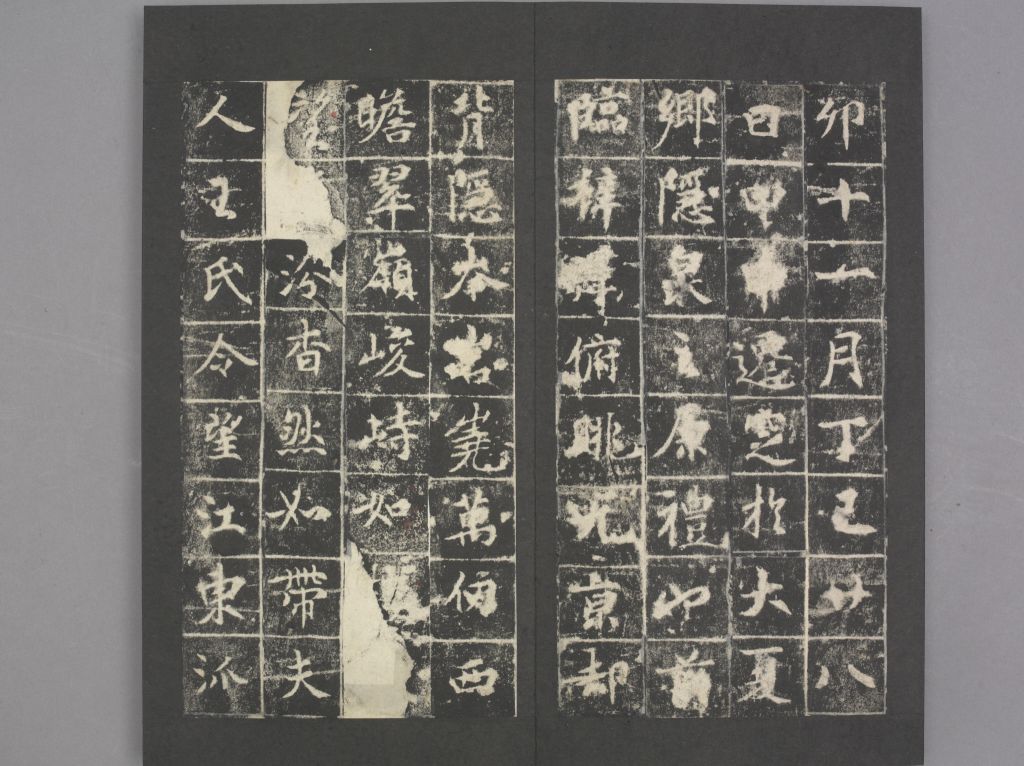 卯十一月丁巳廿八
日甲申遷窆於大夏
鄉隱泉之原禮也前
臨梓澤俯眺
背隱太嵩萬仞西
瞻翠嶺峻峙如
汾杳然如帶夫
人王氏令望江東派